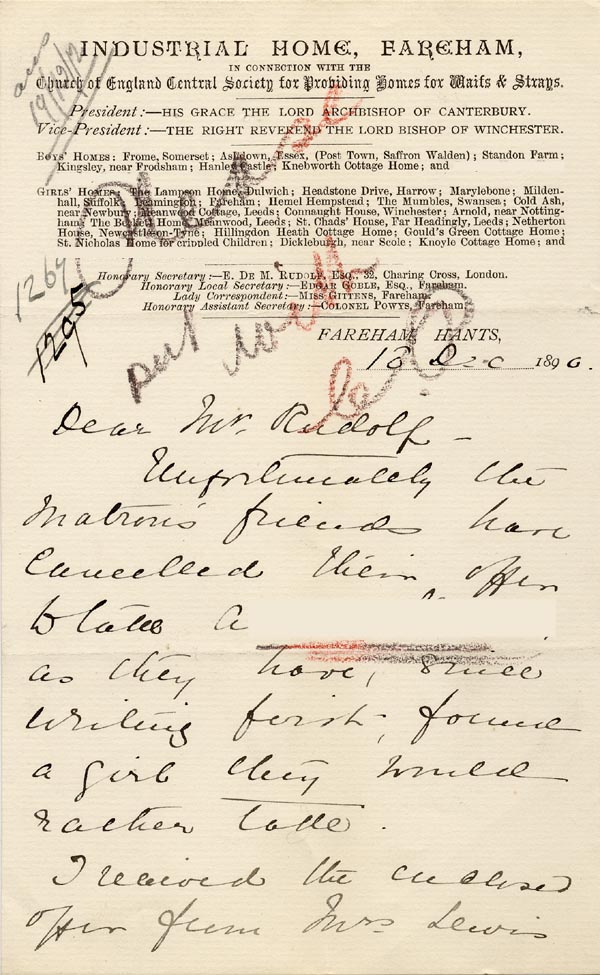 INDUSTRIAL HOME, FAREHAM,
IN CONNECTION WITH THE
Church of England Central Society for Providing Homes for Waifs & Strays.
President:—HIS GRACE THE LORD ARCHBISHOP OF CANTERBURY.
Vice-President:—THE RIGHT REVEREND THE LORD BISHOP OF WINCHESTER.
BOYS' HOMES: Frome, Somerset; Ashdown, Essex, (Post Town, Saffron Walden); Standon Farm;
Kingsley, near Frodsham; Hanley Castle; Knebworth Cottage Home; and
GIRLS' HOMES: The Lampson Home, Dulwich; Headstone Drive, Harrow; Marylebone; Milden-
hall, Suffolk; Leamington; Fareham; Hemel Hempstead; The Mumbles, Swansea; Cold Ash,
near Newbury; Meanwood Cottage, Leeds; Connaught House, Winchester; Arnold, near Notting-
ham; The Beckett Home, Meanwood, Leeds; St. Chads' House, Far Headingly, Leeds; Netherton
House, Newcastle-on-Tyne; Hillingdon Heath Cottage Home; Gould's Green Cottage Home;
St. Nicholas Home for crippled Children; Dickleburgh, near Scole; Knoyle Cottage Home; and
Honorary Secretary:—E. DE M. RUDOLF, ESQ., 32, Charing Cross, London.
Honorary Local Secretary:—EDGAR GOBLE, ESQ., Fareham.
Lady Correspondent:—MISS GITTENS, Fareham.
Honorary Assistant Secretary:—COLONEL POWYS, Fareham.
19/12/90
1267
1205
put with
FAREHAM HANTS,
18 Dec 1890.
Dear Mr. Rudolf—
Unfortunately the
Matron's friends have
cancelled their offer
to take A
as they have, since
writing first, found
a girl they would
rather take.
I received the enclosed
offer from Mrs Lewis